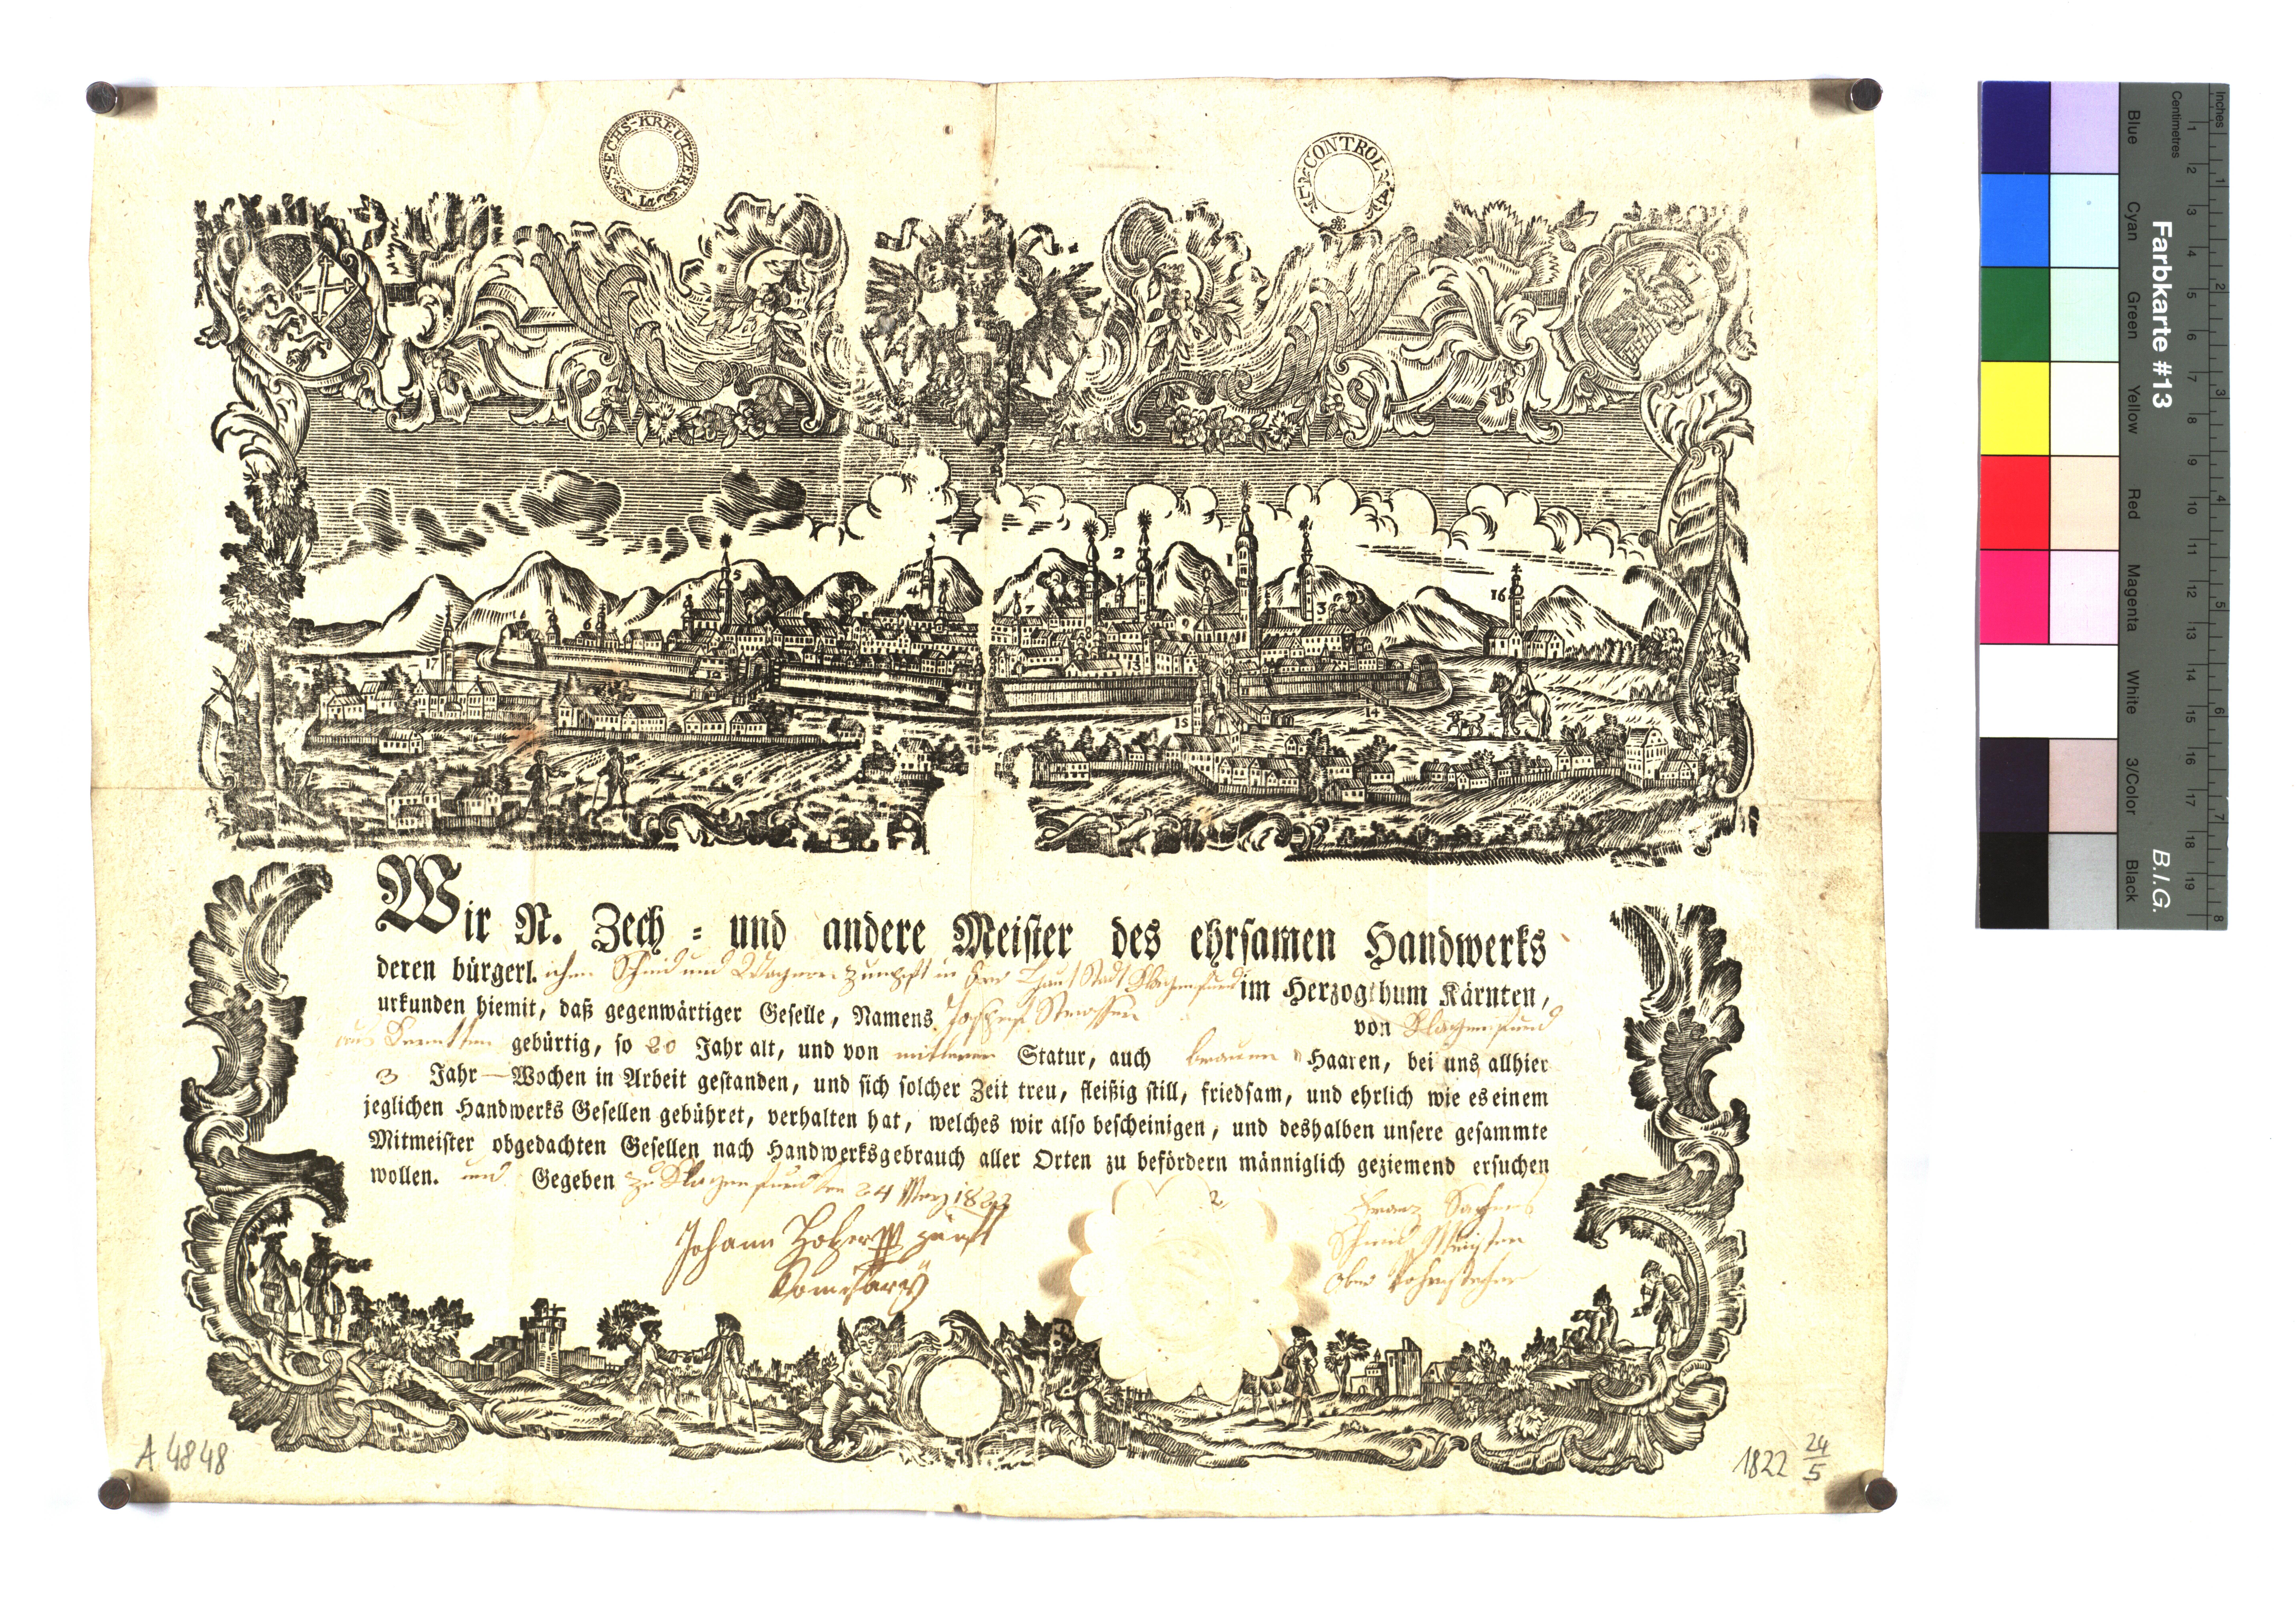 SECHS-KREUTZER
CONTROL
5
4
2
1
7
3
16
6
17
12
13
15
14
Wir N. Zech- und andere Meister des ehrsamen Handwerks
deren bürgerl.ichen Schmid und Wagner Zunpft in der Haupt Stadt Klagenfurd im Herzogthum Kärnten,
urkunden hiemit, daß gegenwärtiger Geselle, Namens Joseph von Klagenfurd
aus gebürtig, so 20 Jahr alt, und von mitleren Statur, auch braunen Haaren, bei uns allhier
3 Jahr — Wochen in Arbeit gestanden, und sich solcher Zeit treu, fleißig still, friedsam, und ehrlich wie es einem
jeglichen Handwerks Gesellen gebühret, verhalten hat, welches wir also bescheinigen, und deshalben unsere gesammte
Mitmeister obgedachten Gesellen nach Handwerksgebrauch aller Orten zu befördern männiglich geziemend ersuchen
wollen. und Gegeben zu Klagenfurd den 24 1822
Johann
Franz
Schmid Meister
Ober
A 4848
1822 24/5
Inches
Centimetres
Farbkarte #13
B.I.G.
Blue
Cyan
Green
Yellow
Red
Magenta
White
3/Color
Black
1 2 3 4 5 6 7 8 9 10 11 12 13 14 15 16 17 18 19
1 2 3 4 5 6 7 8